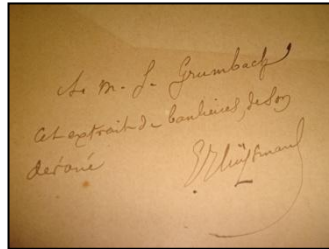 à M. J. Grumbach
cet extrait de banlieues, de son
dévoué
J K Huÿsmans